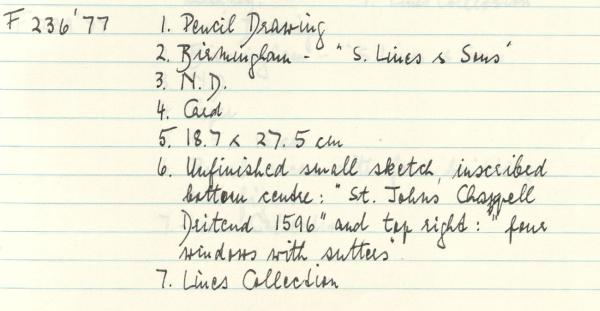 F 236'77 1. Pencil Drawing
2. Birmingham - "S. Lines & Sons"
3. N.D.
4. Card
5. 18.7 x 27.5 cm
6. Unfinished small sketch, inscribed
bottom centre: "St. Johns Chappell
Deitend 1596" and top right: "four
windows with sutters"
7. Lines Collection